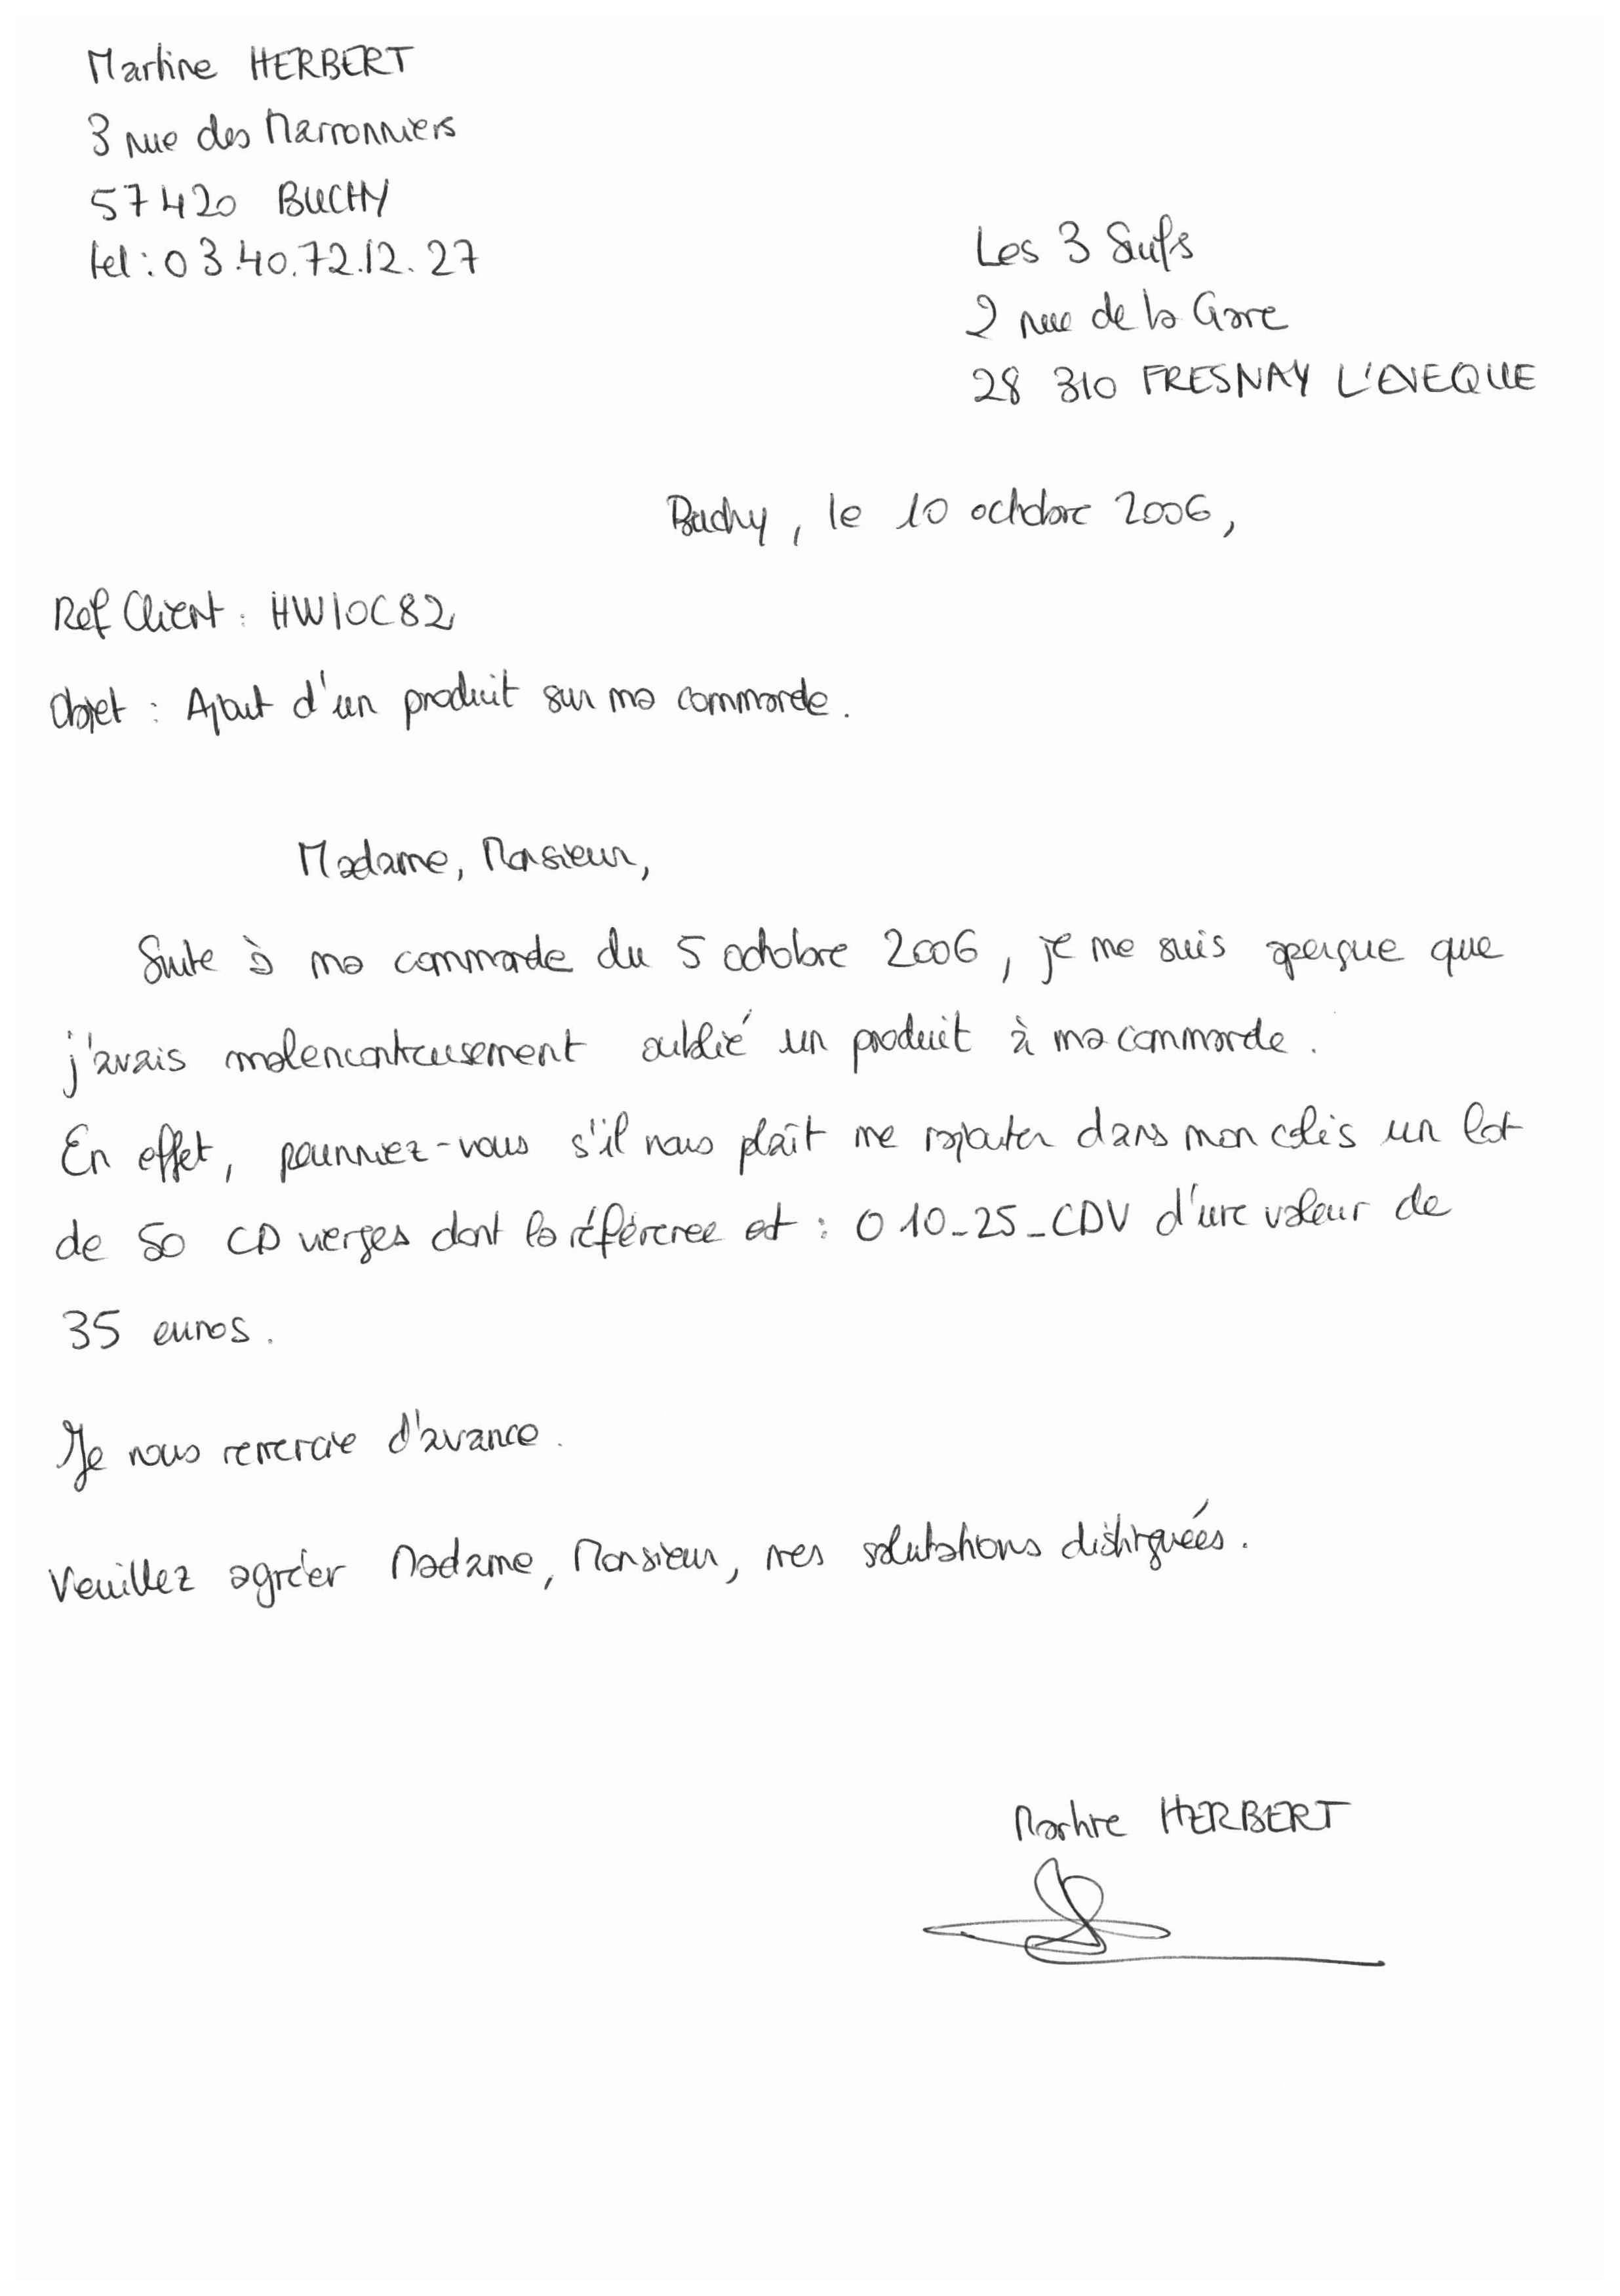 Martine HERBERT
3 rue des Marronniers
57420 BUCHY
tel : 03.40.72.12.27
Les 3 Suifs
2 rue de la Gare
28 310 FRESNAY L'EVEQUE
Buchy, le 10 octobre 2006,
Ref Client : HWIOC82
Objet : Ajout d'un produit sur ma commande.
Madame, Monsieur,
Suite à ma commande du 5 octobre 2006, je me suis aperçue que
j'avais malencontreusement oublié un produit à ma commande.
En effet, pourriez-vous s'il vous plaît me rajouter dans mon colis un lot
de 50 CD vierges dont la référence est : 010-25_CDV d'une valeur de
35 euros.
Je vous remercie d'avance.
Veuillez agréer Madame, Monsieur, mes salutations distinguées.
Martine HERBERT